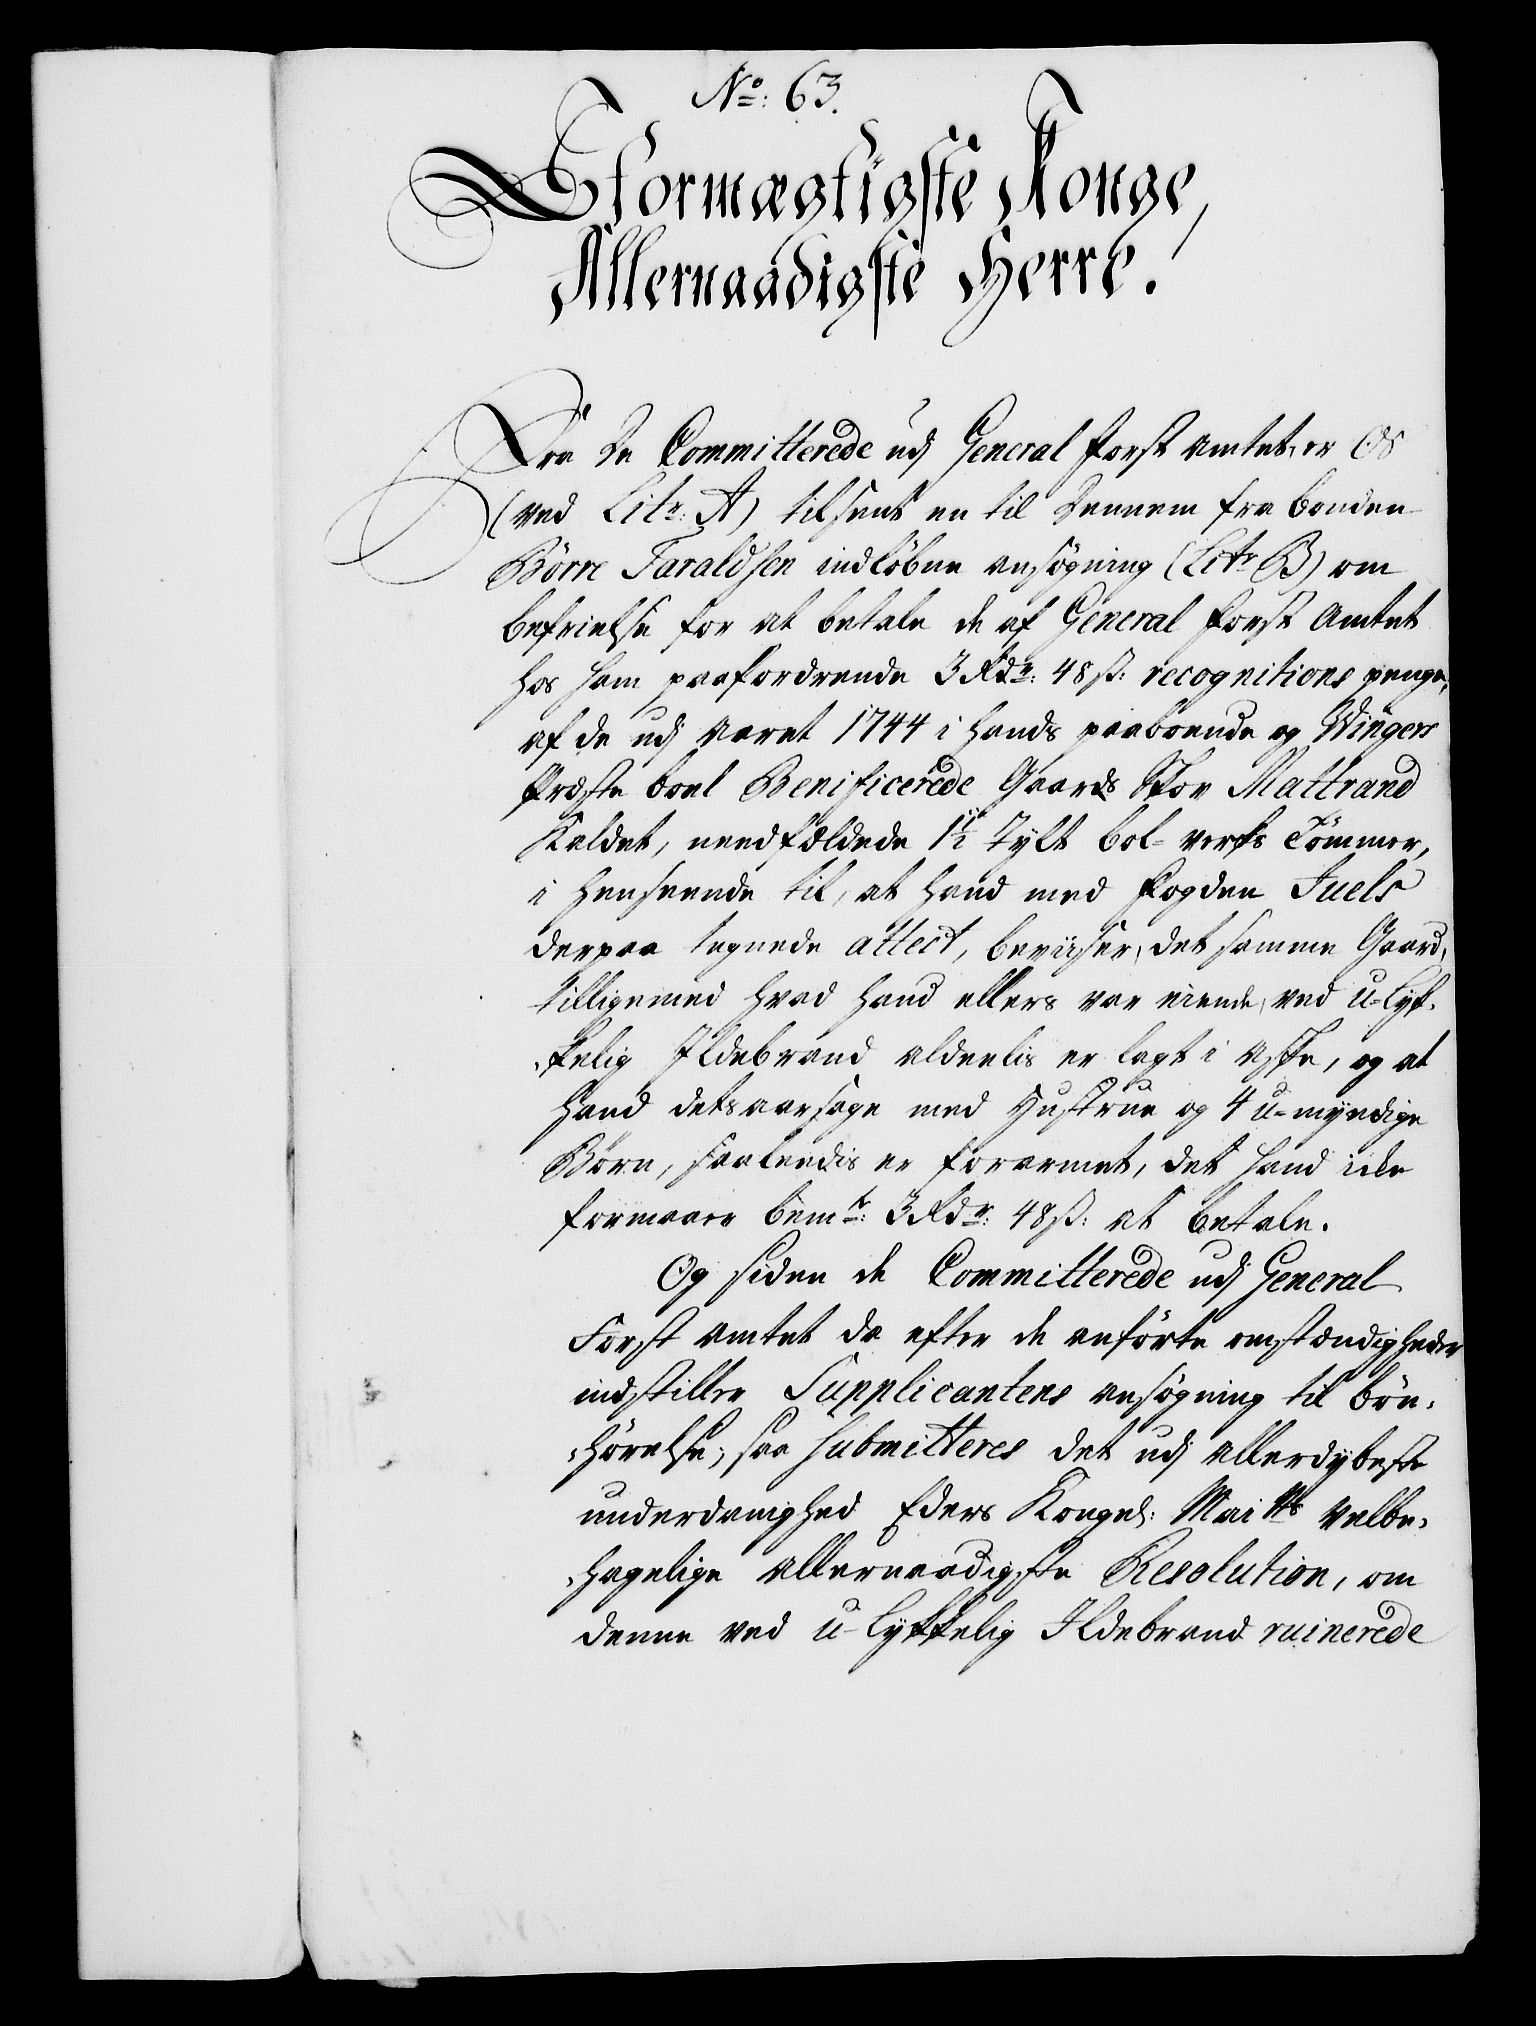 No: 63.
Stormægtigste Konge,
Allernaadigste Herre!
Fra De Committerede udj General Forst Amtet er Os
(ved Litr: A) tilsent en til Dennem fra bonden
Börre Taraldsen indlöbne ansögning (Litr B) om
befrielse for at betale de af General Forst Amtet
hos ham paafordrende 3 Rdr: 48 ß: recognitions penge,
af de udj Aaret 1744 i hands paaboende og Wingers
Præste boel Benificerede Gaards Skov Mattrand
Kaldet, needfældede 1½ Tylt bol-verks Tömmer,
i henseende til, at hand med Fogden Juels
derpaa tegnede attest, beviiser, det samme Gaard,
tilligemed hvad hand ellers var eiende, ved u-lyk-
-kelig Ildebrand aldeelis er lagt i Aske, og at
hand detsaarsage med Hustrue og 4 u-myndige
Börn, saaleedis er forarmet, det hand icke
formaaer bemte: 3 Rdr: 48 ß: at betale.
Og siden de Committerede udj General
Forst Amtet da efter de anförte omstændigheder
indstiller Supplicantens ansögning til bön-
-hörelse; saa submitteres det udj allerdybeste
underdanighed Eders Kongel: Maitts velbe-
-hagelige allernaadigste Resolution, om
denne ved u-lykkelig Ildebrand ruinerede